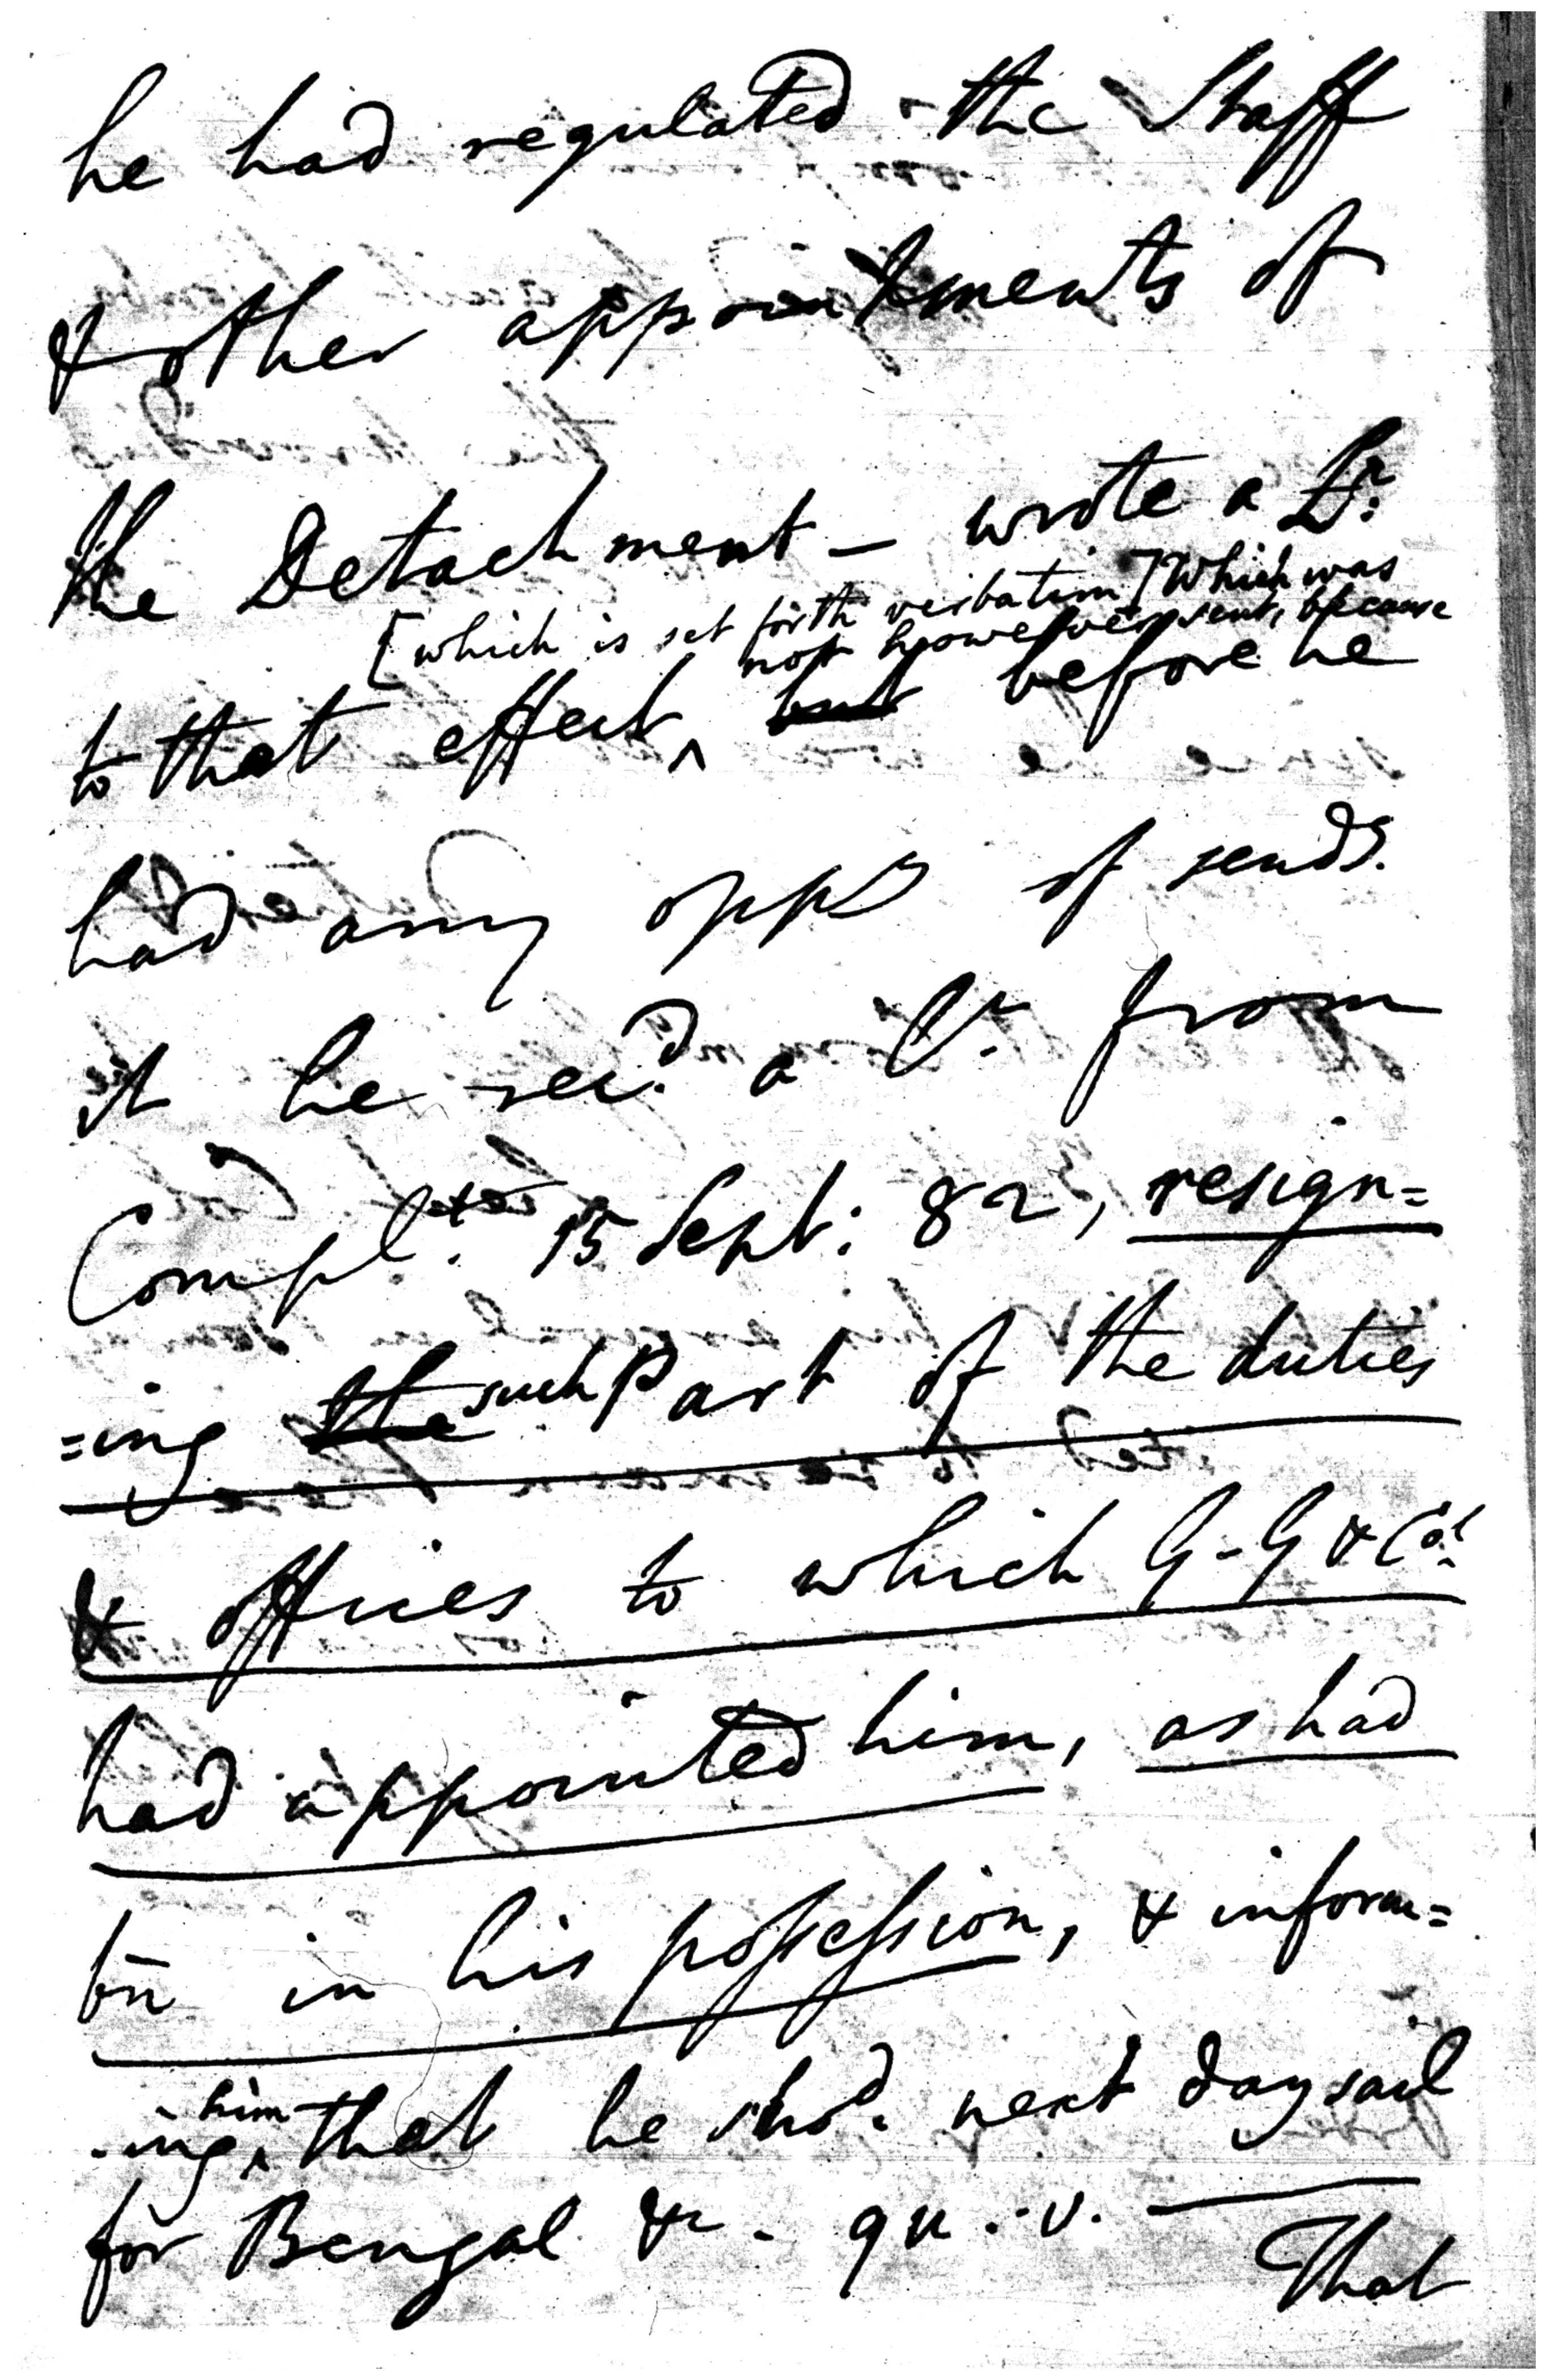 he had regulated the Staff
& other appointments of
the Detachment — wrote a Lr.
[which is set forth verbatim] which was
not however sent, because
to that effect, ^ but before he
had any oppy of sendg.
it he recd. a lr. from
Complt. 15 Sept: 82, resign=
=ing the such Part of the duties
& offices to which G-G & Col.
had appointed him, as had
bn in his possession, & inform=
-ing ^ him that he shod. next day sail
for Bengal &c. qu. v. —
That